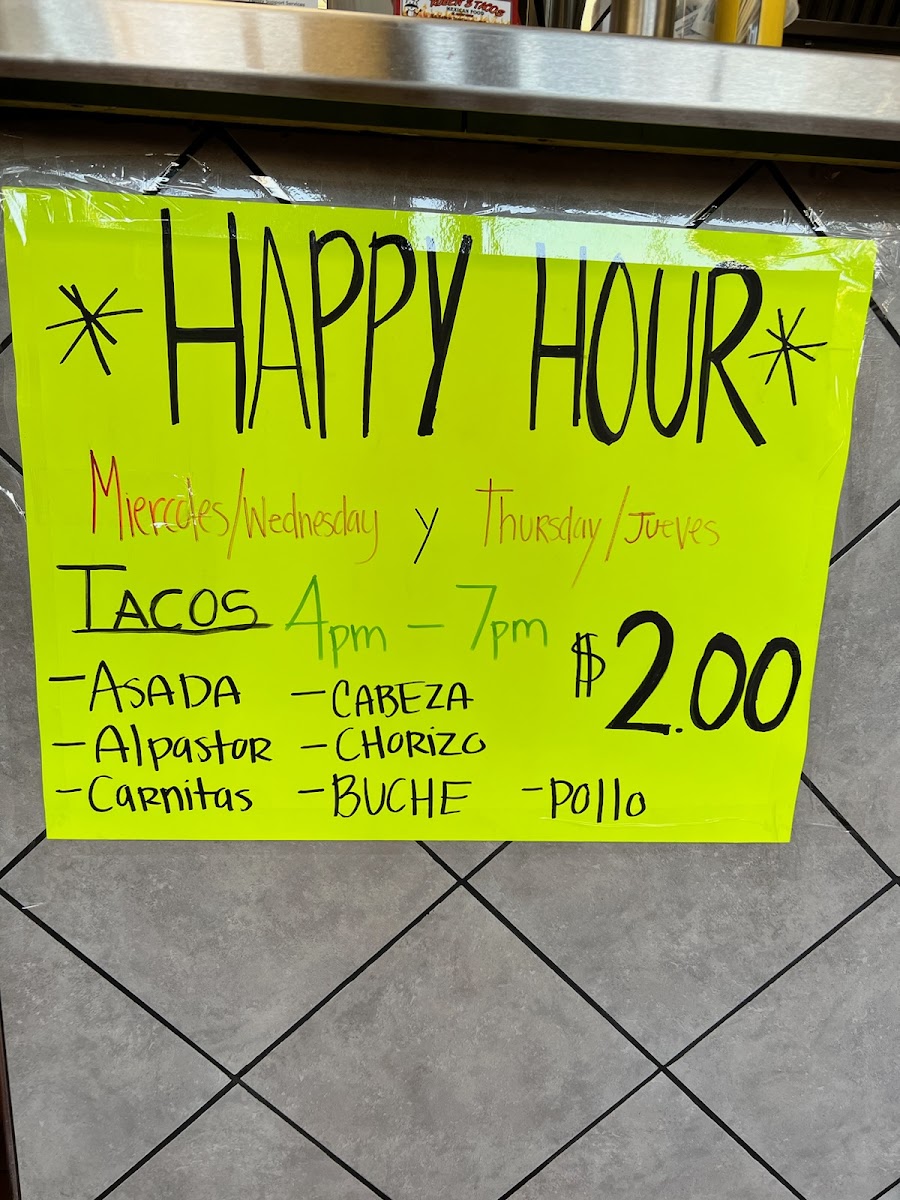 TACOS
MEXICAN FOOD
* HAPPY HOUR *
Miercoles/Wednesday y Thursday/Jueves
TACOS 4pm - 7pm
$2.00
- ASADA - CABEZA
- Alpastor - CHORIZO
- Carnitas - BUCHE - Pollo